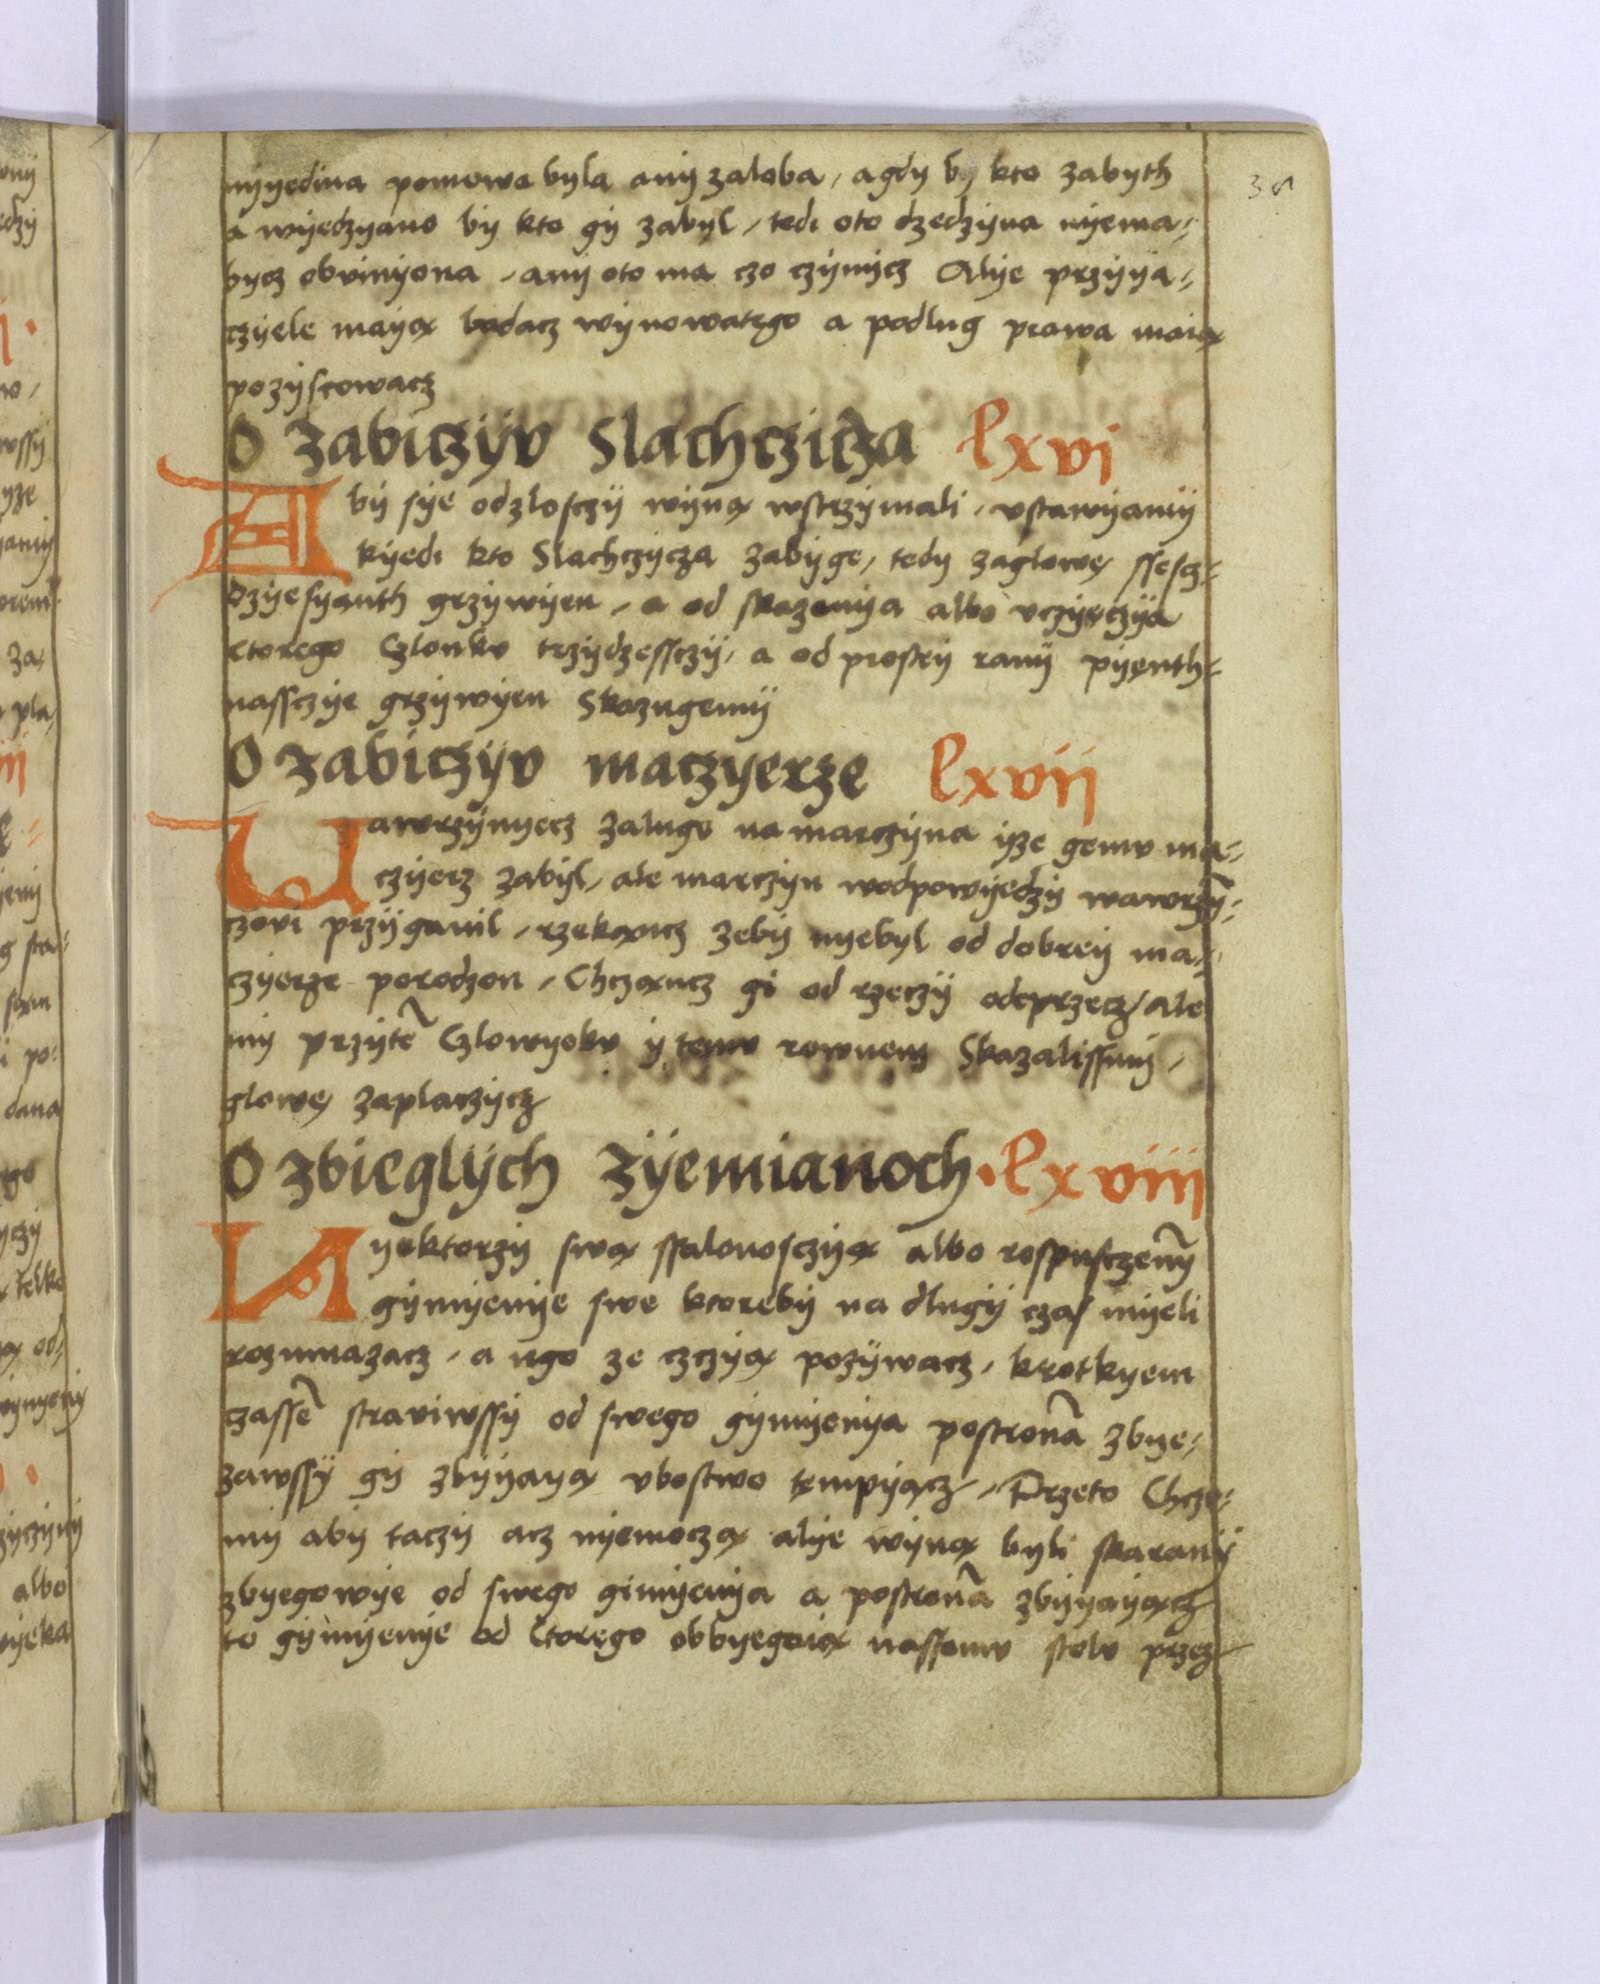 nyyedina pomowa byla any zaloba, agdy by kto zabyth
a wyedzyano by kto gy zabyl, tedi oto dzedzyna nyema-
bycz obvinyona, any oto ma czo czynycz Alye przyya-
czyele mayą badacz wynowatego a podlug prawa maią
pozyscowacz
O zabiczyv slachczicza lxvi
Aby sye odzlosczy wyną wstrzymali, vstawyamy
kyedi kto Slachczycza zabyge, tedy zaglowę ssescz-
dzyesyanth grzywyen, a od skazenya albo vczyęczya
ctorego Czlonkv trzydzessczy, a od prostey rany pyenth-
nassczye grzywyen Skazugemy
O zabiczyv maczyerze lxvii
Wawrzynyecz zalugo na marczyna yze gemv ma-
czyerz zabyl, ale marczyn wodpowyedzy wawrzyn-
czovi przyganil, rzekącz zeby nyebyl od dobrey ma-
czyerze porodzon, Chcząncz gi od rzeczy odeprzecz, ale
my przytē Czlowyekv y temv rownem Skazalissmy,
glowę zaplaczycz
O zbieglych zyemianoch. lxviii
Nyektorzy swą sfalonosczyą albo rospusczeny̅
gymyenye swe ktoreby na dlugy czas myeli
rozmnazacz, a ngo ze czczyą pozywacz, krotkyem
czassē straviwssy od swego gymyenya postronā zbye-
zawssy gy zbyyayą vbostwo tempyącz, Przeto Chcze-
my aby taczy acz nyemoczą alye wyną byli skarany
zbyegowye od swego gimyenya a postronā zbyyayącz
to gymyenye od Ctorego obbyegaią nassemv stolv przez